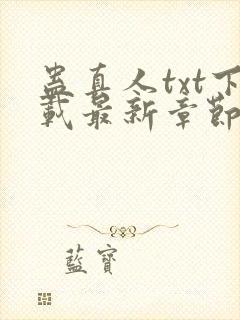 蛊真人txt下
载最新章節
藍寶